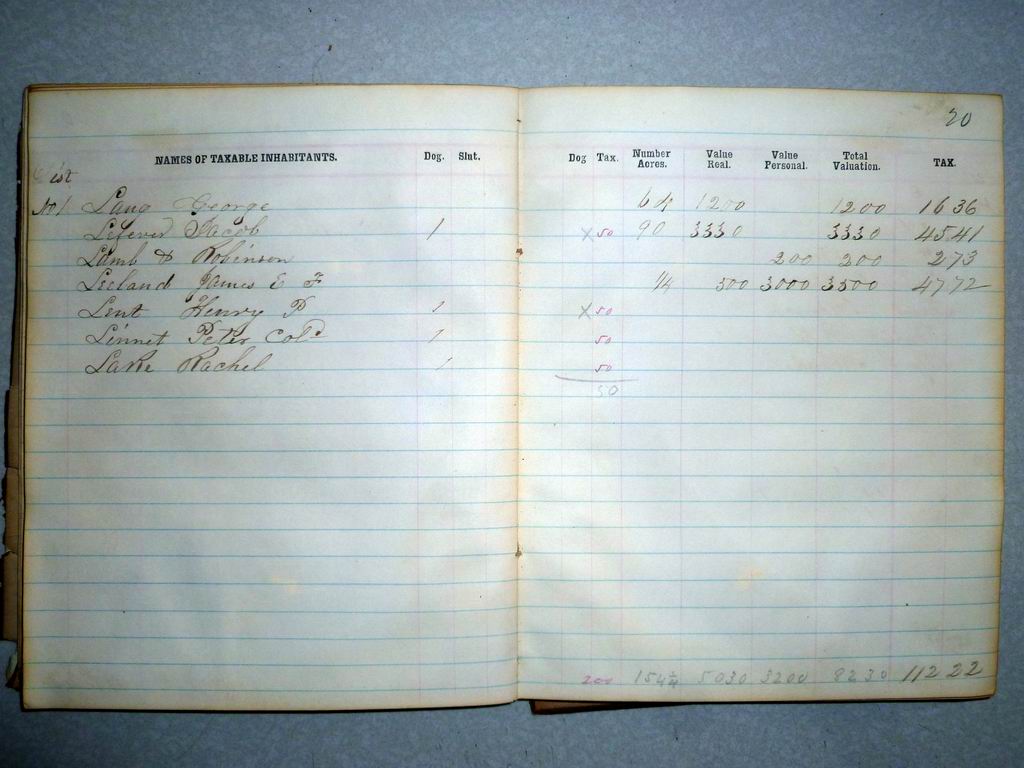 20
NAMES OF TAXABLE INHABITANTS. Dog. Slut. Dog Tax. Number Acres. Value Real. Value Personal. Total Valuation. TAX.
Dist
No 1 Lang George 64 1200 1200 16 36
Lefever Jacob 1 X 50 90 3330 3330 45 41
Lamb & Robinson 200 200 2 73
Leeland James E F 1/4 500 3000 3500 47 72
Lent Henry P 1 X 50
Linnet Peter Cold 1 50
Lake Rachel 1 50
50
200 154 1/4 5030 3200 8230 112 22